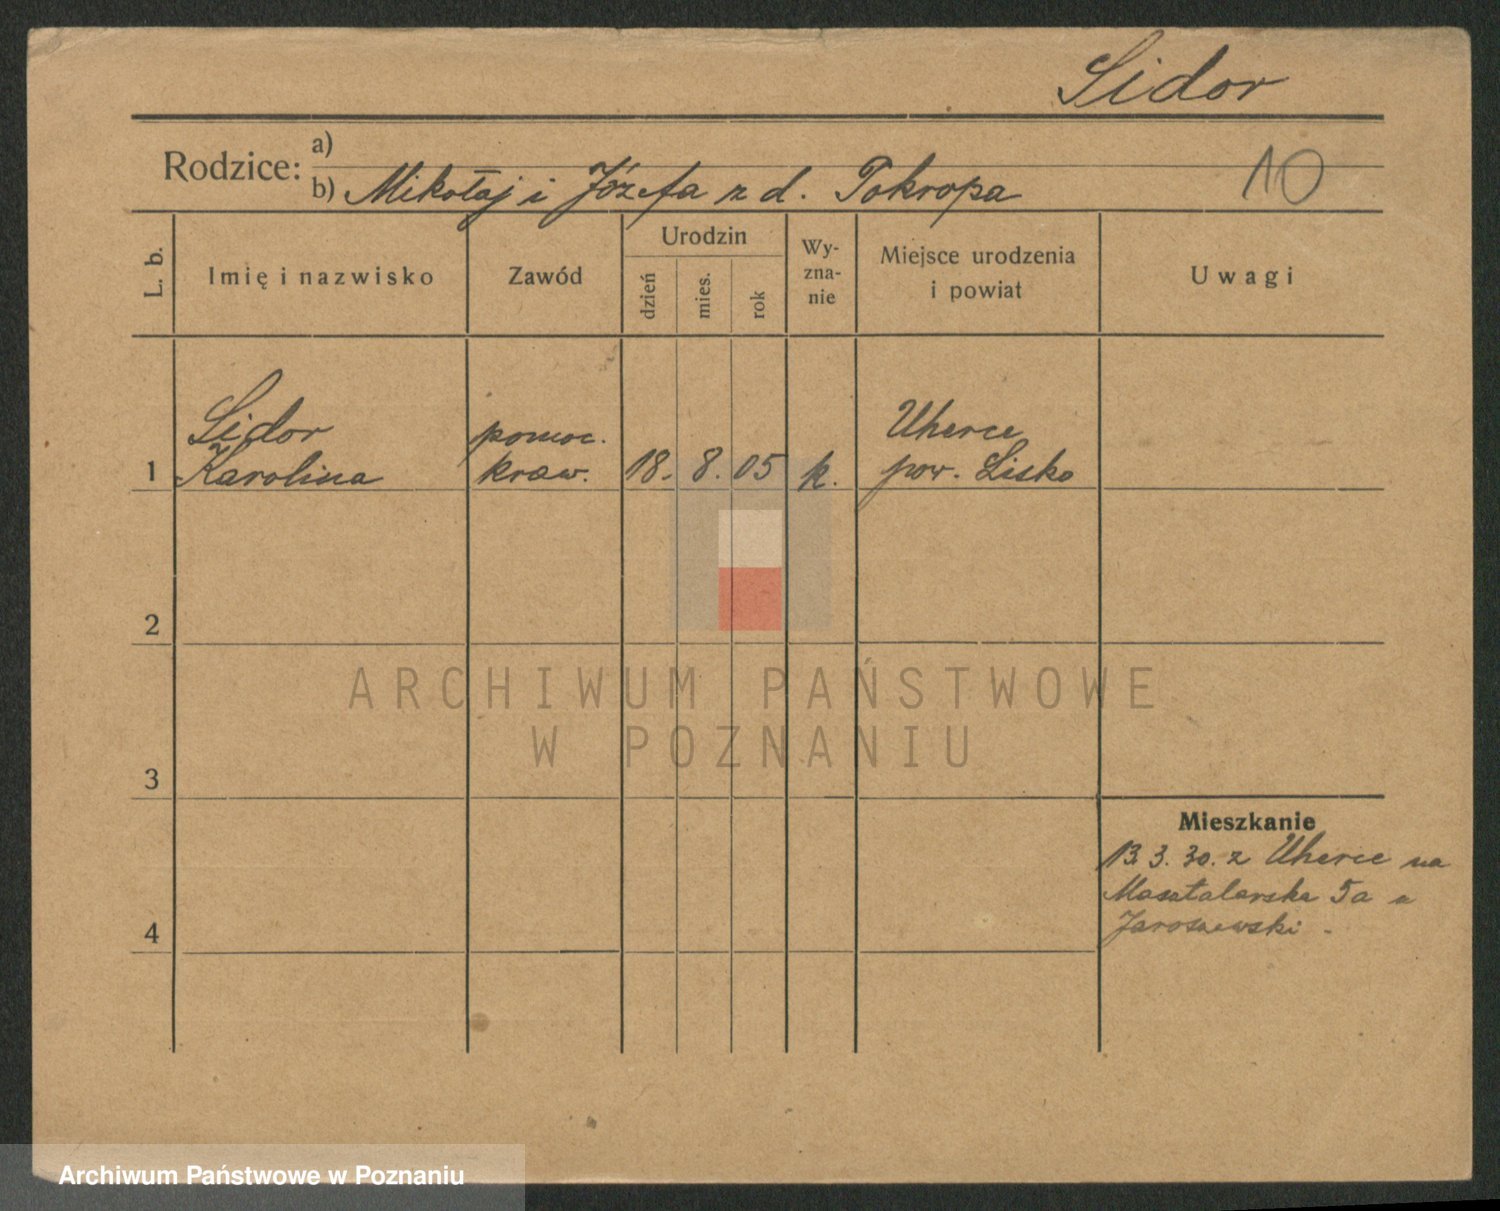 Sidor
Rodzice: a)
b) Mikołaj i Józefa z d. Pokropa
10
L. b.
Imię i nazwisko
Zawód
Urodzin
dzień
mies.
rok
Wy-
zna-
nie
Miejsce urodzenia
i powiat
Uwagi
1
Sidor
Karolina
pomoc.
kraw.
18. 8. 05
k.
Uherce
pow. Lisko
2
3
4
Mieszkanie
13 3. 30. z Uherce na
Masztalarska 5a u
Jaroszewski.
ARCHIWUM PAŃSTWOWE
W POZNANIU
Archiwum Państwowe w Poznaniu